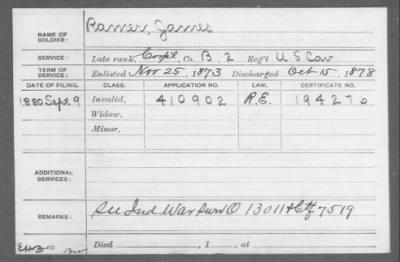 NAME OF SOLDIER: Ramer, James
SERVICE: Late rank, Corp'l, Co. B, 2 Reg't U S Cav
TERM OF SERVICE: Enlisted Nov 25, 1873 Discharged Oct 15, 1878
DATE OF FILING. CLASS. APPLICATION NO. LAW. CERTIFICATE NO.
1880 Sept. 9 Invalid, 410902 R.E. 194276
Widow,
Minor,
ADDITIONAL SERVICES:
REMARKS: See Ind War Surv O 13011 & Ctf 7519
Died , 1 , at